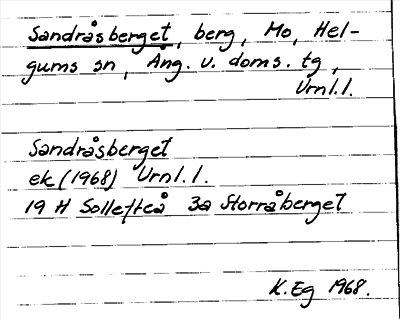 Sandråsberget, berg, Mo, Hel-
gums sn, Ång. v. doms. tg,
Urnl.l.
Sandråsberget
ek (1968) Urnl.l.
19 H Sollefteå 3a Storråberget
K.Eg 1968.